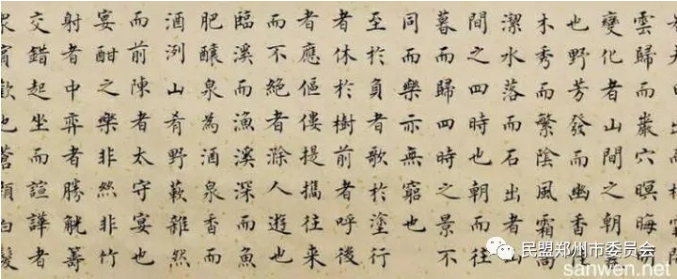 雲歸而巖穴暝晦
變化者山間之朝
也野芳發而幽香佳
木秀而繁陰風霜高
潔水落而石出者山
間之四時也朝而往
暮而歸四時之景不
同而樂亦無窮也
至於負者歌於塗行
者休於樹前者呼後
者應傴僂提攜往來
而不絕者滁人遊也
臨溪而漁溪深而魚
肥釀泉為酒泉香而
酒洌山肴野蔌雜然
而前陳者太守宴也
宴酣之樂非絲非竹
射者中弈者勝觥籌
交錯起坐而諠譁者
眾賓歡也蒼顏白髮
民盟郑州市委员会
sanwen.net